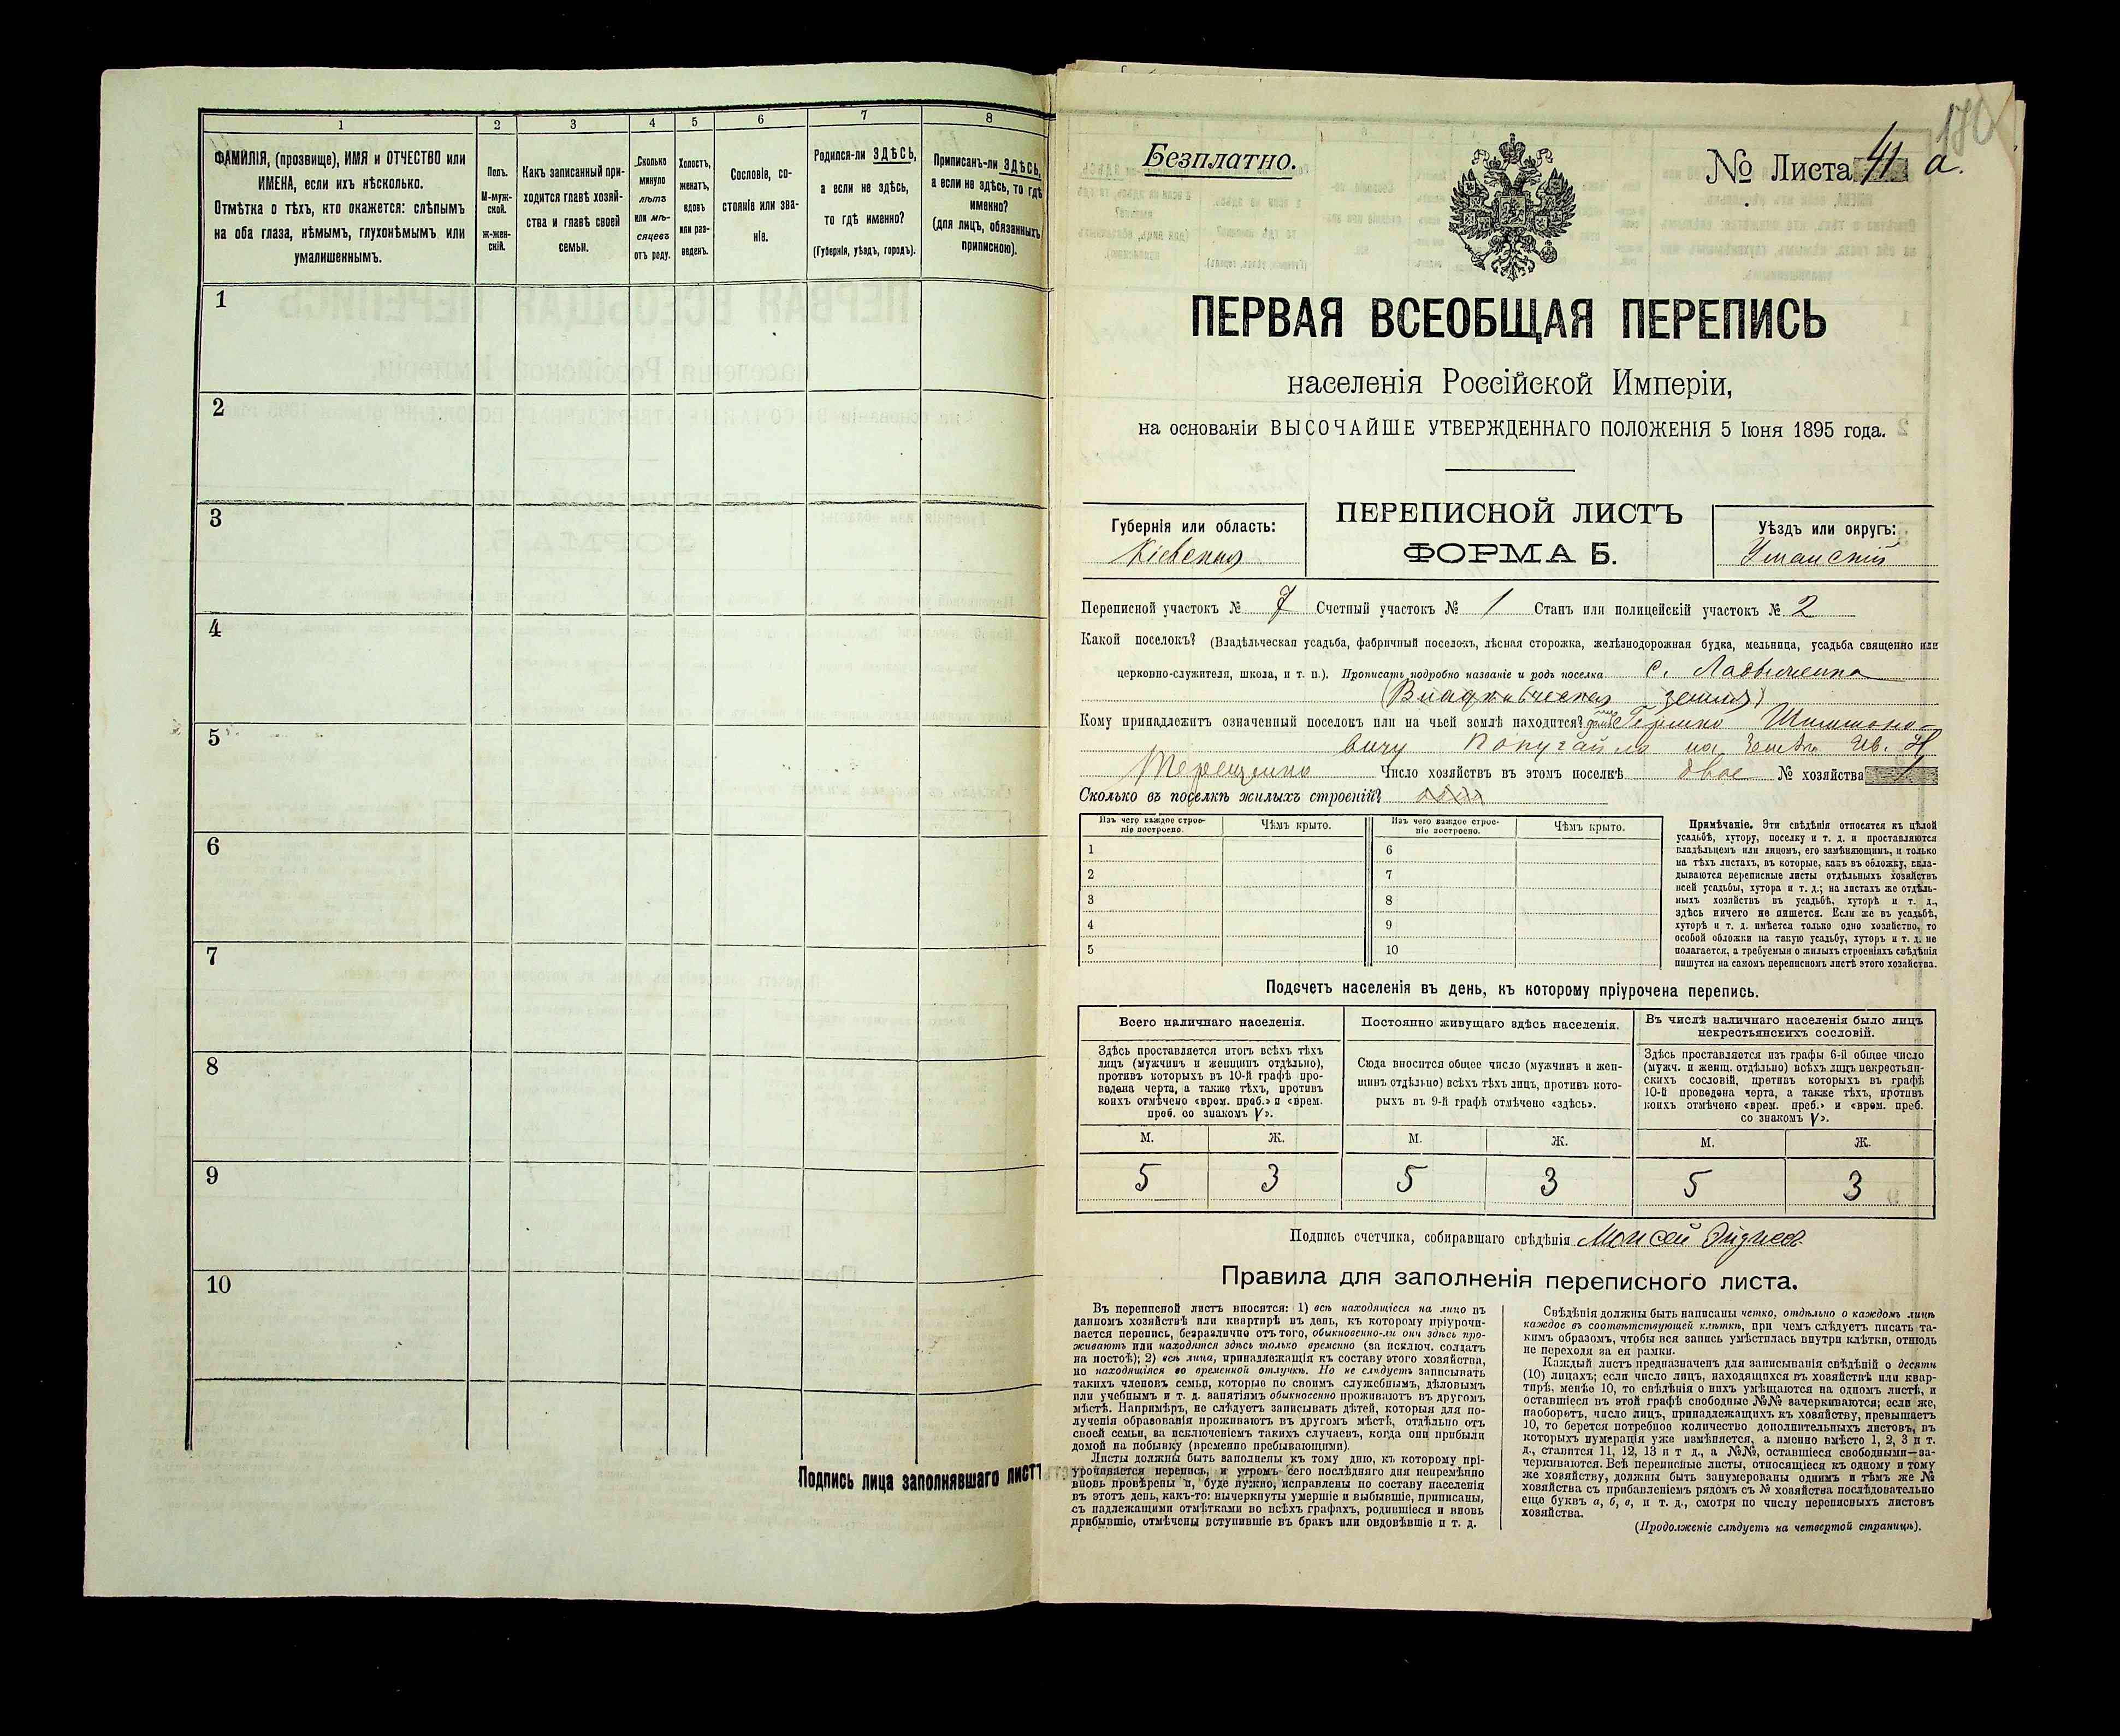 1
2
3
4
5
6
7
8
ФАМИЛІЯ, (прозвище), ИМЯ и ОТЧЕСТВО или
ИМЕНА, если ихъ нѣсколько.
Отмѣтка о тѣхъ, кто окажется: слѣпымъ
на оба глаза, нѣмымъ, глухонѣмымъ или
умалишеннымъ.
Полъ.
М-муж-
ской.
ж-жен-
скій.
Какъ записанный при-
ходится главѣ хозяй-
ства и главѣ своей
семьи.
Сколько
минуло
лѣтъ
или мѣ-
сяцевъ
отъ роду.
Холостъ,
женатъ,
вдовъ
или раз-
веденъ.
Сословіе, со-
стояніе или зва-
ніе.
Родился-ли ЗДѢСЬ,
а если не здѣсь,
то гдѣ именно?
(Губернія, уѣздъ, городъ).
Приписанъ-ли ЗДѢСЬ,
а если не здѣсь, то гдѣ
именно?
(для лицъ, обязанныхъ
припискою).
1
2
3
4
5
6
7
8
9
10
Подпись лица заполнявшаго лист
Безплатно.
№ Листа 41 а.
ПЕРВАЯ ВСЕОБЩАЯ ПЕРЕПИСЬ
населенія Россійской Имперіи,
на основаніи ВЫСОЧАЙШЕ УТВЕРЖДЕННАГО ПОЛОЖЕНІЯ 5 Іюня 1895 года.
Губернія или область:
Кіевская
ПЕРЕПИСНОЙ ЛИСТЪ
ФОРМА Б.
Уѣздъ или округъ:
Уманскій
Переписной участокъ № 7 Счетный участокъ № 1 Станъ или полицейскій участокъ № 2
Какой поселокъ? (Владѣльческая усадьба, фабричный поселокъ, лѣсная сторожка, желѣзнодорожная будка, мельница, усадьба священно или
церковно-служителя, школа, и т. п.). Прописать подробно названіе и родъ поселка с.
земля)
Кому принадлежитъ означенный поселокъ или на чьей землѣ находится?
вичу на землѣ
Терещенко Число хозяйствъ въ этомъ поселкѣ двое № хозяйства 1
Сколько въ поселкѣ жилыхъ строеній?
Изъ чего каждое строе-
ніе построено.
Чѣмъ крыто.
Изъ чего каждое строе-
ніе построено.
Чѣмъ крыто.
1
6
2
7
3
8
4
9
5
10
Примѣчаніе. Эти свѣдѣнія относятся къ цѣлой
усадьбѣ, хутору, поселку и т. д. и проставляются
владѣльцемъ или лицомъ, его замѣняющимъ, и только
на тѣхъ листахъ, въ которые, какъ въ обложку, вкла-
дываются переписные листы отдѣльныхъ хозяйствъ
всей усадьбы, хутора и т. д.; на листахъ же отдѣль-
ныхъ хозяйствъ въ усадьбѣ, хуторѣ и т. д.,
здѣсь ничего не пишется. Если же въ усадьбѣ,
хуторѣ и т. д. имѣется только одно хозяйство, то
особой обложки на такую усадьбу, хуторъ и т. д. не
полагается, а требуемыя о жилыхъ строеніяхъ свѣдѣнія
пишутся на самомъ переписномъ листѣ этого хозяйства.
Подсчетъ населенія въ день, къ которому пріурочена перепись.
Всего наличнаго населенія.
Постоянно живущаго здѣсь населенія.
Въ числѣ наличнаго населенія было лицъ
некрестьянскихъ сословій.
Здѣсь проставляется итогъ всѣхъ тѣхъ
лицъ (мужчинъ и женщинъ отдѣльно),
противъ которыхъ въ 10-й графѣ про-
ведена черта, а также тѣхъ, противъ
коихъ отмѣчено «врем. преб.» и «врем.
преб. со знакомъ V».
Сюда вносится общее число (мужчинъ и жен-
щинъ отдѣльно) всѣхъ тѣхъ лицъ, противъ кото-
рыхъ въ 9-й графѣ отмѣчено «здѣсь».
Здѣсь проставляется изъ графы 6-й общее число
(мужч. и женщ. отдѣльно) всѣхъ лицъ некрестьян-
скихъ сословій, противъ которыхъ въ графѣ
10-й проведена черта, а также тѣхъ, противъ
коихъ отмѣчено «врем. преб.» и «врем. преб.
со знакомъ V».
М. Ж. М. Ж. М. Ж.
5 3 5 3 5 3
Подпись счетчика, собиравшаго свѣдѣнія Моисей
Правила для заполненія переписного листа.
Въ переписной листъ вносятся: 1) всѣ находящіеся на лицо въ
данномъ хозяйствѣ или квартирѣ въ день, къ которому пріурочи-
вается перепись, безразлично отъ того, обыкновенно-ли они здѣсь про-
живаютъ или находятся здѣсь только временно (за исключ. солдатъ
на постоѣ); 2) всѣ лица, принадлежащія къ составу этого хозяйства,
но находящіяся во временной отлучкѣ. Но не слѣдуетъ записывать
такихъ членовъ семьи, которые по своимъ служебнымъ, дѣловымъ
или учебнымъ и т. д. занятіямъ обыкновенно проживаютъ въ другомъ
мѣстѣ. Напримѣръ, не слѣдуетъ записывать дѣтей, которыя для по-
лученія образованія проживаютъ въ другомъ мѣстѣ, отдѣльно отъ
своей семьи, за исключеніемъ такихъ случаевъ, когда они прибыли
домой на побывку (временно пребывающими).
Листы должны быть заполнены къ тому дню, къ которому прі-
урочивается перепись, и утромъ сего послѣдняго дня непремѣнно
вновь провѣрены и, буде нужно, исправлены по составу населенія
въ этотъ день, какъ-то: вычеркнуты умершіе и выбывшіе, приписаны,
съ надлежащими отмѣтками во всѣхъ графахъ, родившіеся и вновь
прибывшіе, отмѣчены вступившіе въ бракъ или овдовѣвшіе и т. д.
Свѣдѣнія должны быть написаны четко, отдѣльно о каждомъ лицѣ
каждое въ соотвѣтствующей клѣткѣ, при чемъ слѣдуетъ писать та-
кимъ образомъ, чтобы вся запись умѣстилась внутри клѣтки, отнюдь
не переходя за ея рамки.
Каждый листъ предназначенъ для записыванія свѣдѣній о десяти
(10) лицахъ; если число лицъ, находящихся въ хозяйствѣ или квар-
тирѣ, менѣе 10, то свѣдѣнія о нихъ умѣщаются на одномъ листѣ, и
оставшіеся въ этой графѣ свободные №№ зачеркиваются; если же,
наоборотъ, число лицъ, принадлежащихъ къ хозяйству, превышаетъ
10, то берется потребное количество дополнительныхъ листовъ, въ
которыхъ нумерація уже измѣняется, а именно вмѣсто 1, 2, 3 и т.
д., ставятся 11, 12, 13 и т д., а №№, оставшіеся свободными—за-
черкиваются. Всѣ переписные листы, относящіеся къ одному и тому
же хозяйству, должны быть занумерованы однимъ и тѣмъ же №
хозяйства съ прибавленіемъ рядомъ съ № хозяйства послѣдовательно
еще буквъ а, б, в, и т. д., смотря по числу переписныхъ листовъ
хозяйства.
(Продолженіе слѣдуетъ на четвертой страницѣ).